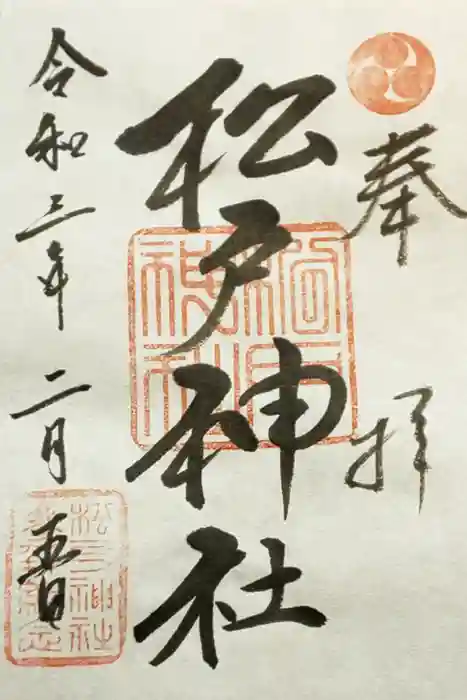 奉拝
松戸神社
令和三年二月五日